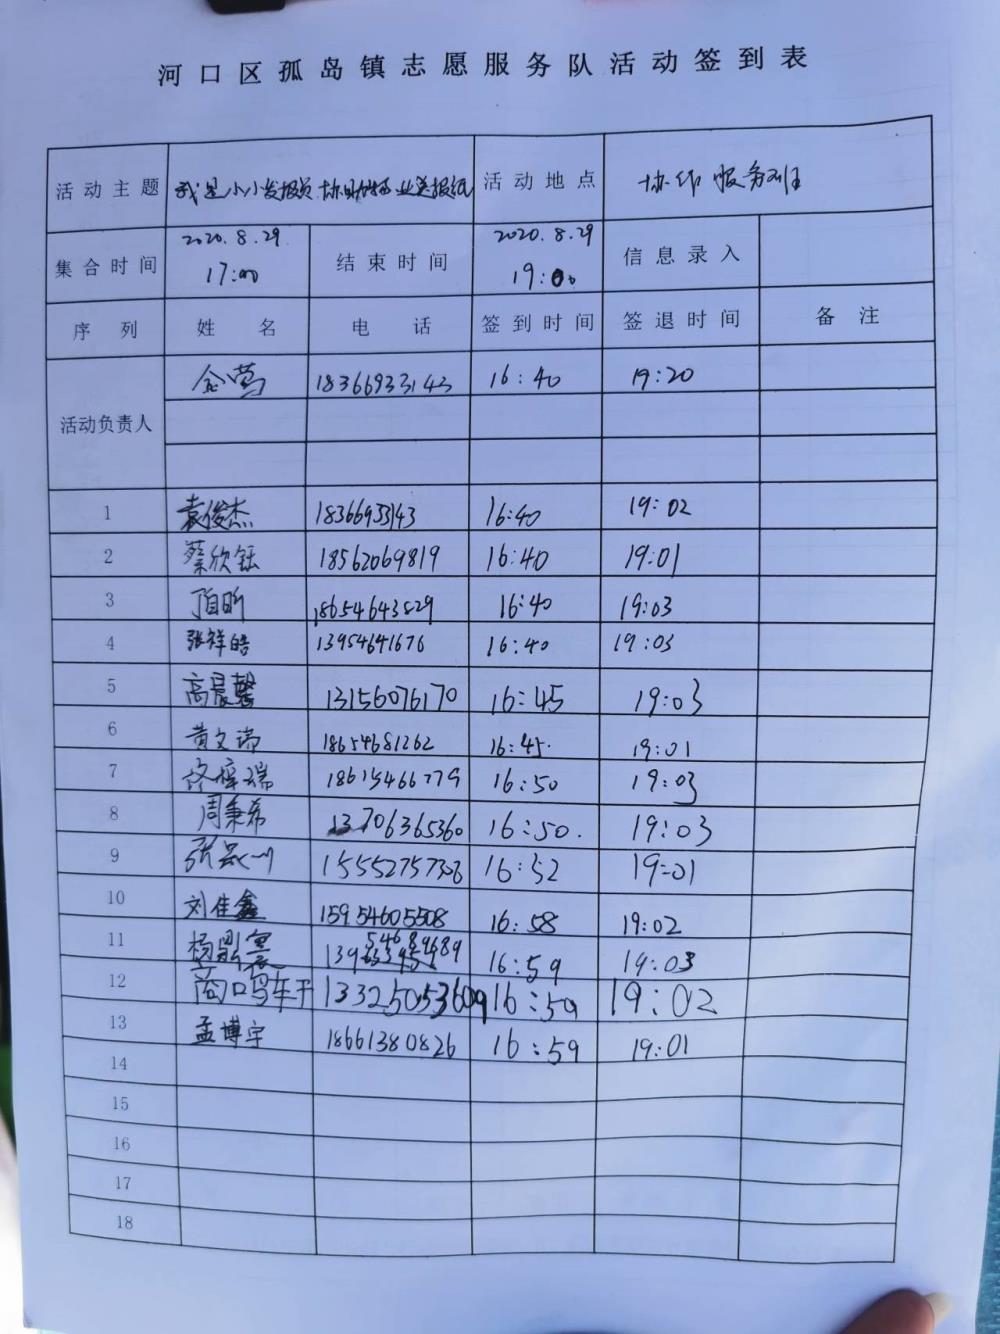 河口区孤岛镇志愿服务队活动签到表
活动主题 我是小小发报员 协助 业送报纸 活动地点 协作服务班
集合时间 2020.8.29 17:00 结束时间 2020.8.29 19:00 信息录入
序列 姓名 电话 签到时间 签退时间 备注
活动负责人 金莺 18366933143 16:40 19:20
1 袁俊杰 1836693143 16:40 19:02
2 蔡欣钰 18562069819 16:40 19:01
3 昕 18654643829 16:40 19:03
4 张祥皓 13954641676 16:40 19:03
5 高晨馨 13156076170 16:45 19:03
6 黄文瑞 18654681262 16:45. 19:01
7 瑞 18615466779 16:50 19:03
8 周秉希 13706365360 16:50. 19:03
9 张 15552757306 16:52 19:01
10 刘佳鑫 15954605508 16:58 19:02
11 杨 139 54689689 16:59 19:03
12 13325053609 16:59 19:02
13 孟博宇 18661380826 16:59 19:01
14
15
16
17
18